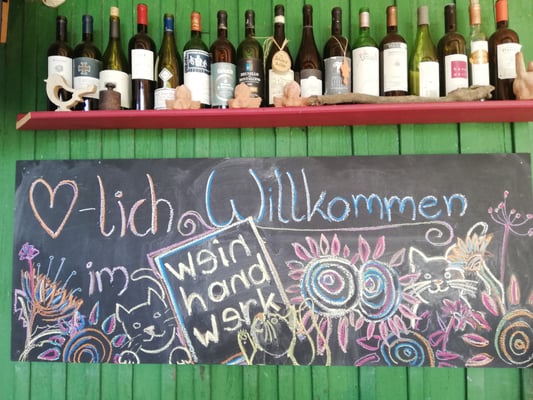 ♡-lich Willkommen
im
wein
hand
werk